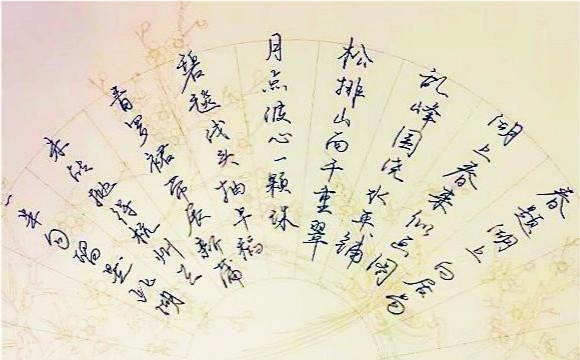 春题湖上
白居易
湖上春来似画图
乱峰围绕水平铺
松排山面千重翠
月点波心一颗珠
碧毯线头抽早稻
青罗裙带展新蒲
未能抛得杭州去
一半勾留是此湖